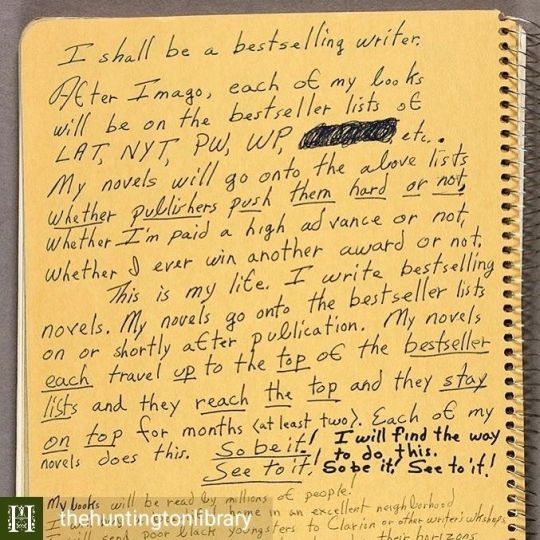 I shall be a bestselling writer.
After Imago, each of my books
will be on the bestseller lists of
LAT, NYT, PW, WP, etc..
My novels will go onto the above lists
whether publishers push them hard or not,
whether I'm paid a high advance or not,
whether I ever win another award or not.
This is my life. I write bestselling
novels. My novels go onto the bestseller lists
on or shortly after publication. My novels
each travel up to the top of the bestseller
lists and they reach the top and they stay
on top for months (at least two). Each of my
novels does this. So be it! I will find the way
See to it! to do this.
So be it! See to it!
My books will be read by millions of people!
I will home in an excellent neighborhood
I will send poor black youngsters to Clarion or other writer's wkshops
their horizons
thehuntingtonlibrary